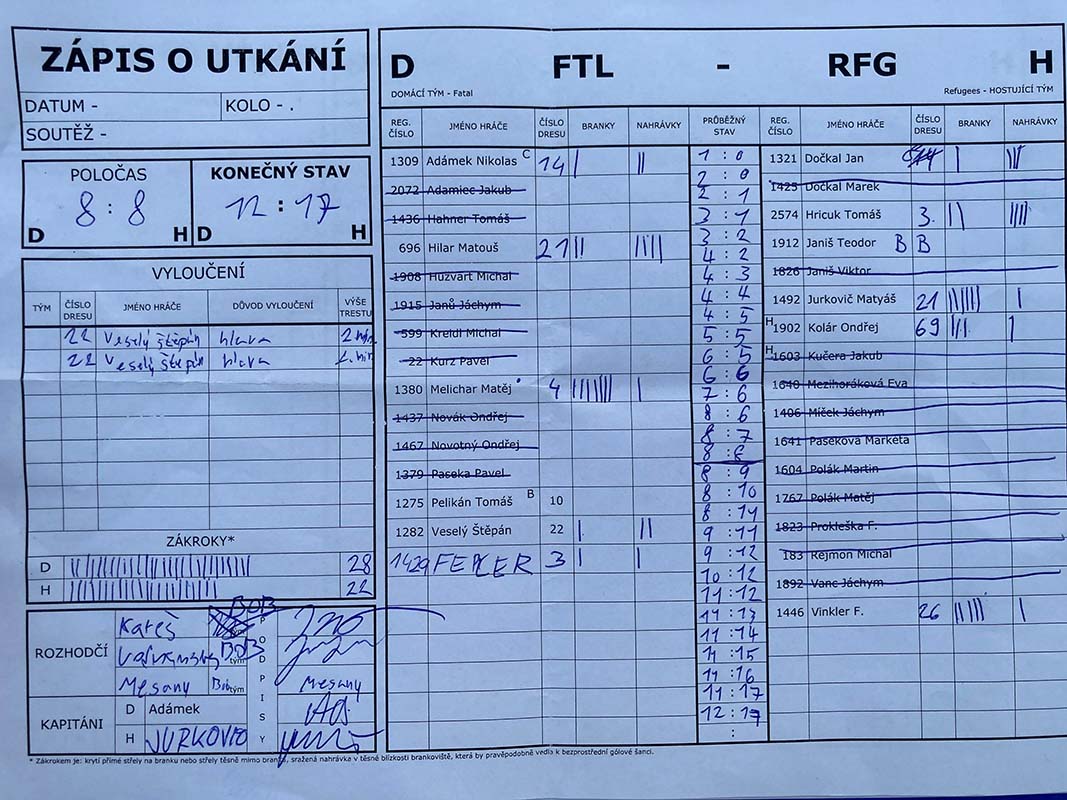 ZÁPIS O UTKÁNÍ
DATUM -
KOLO - .
SOUTĚŽ -
POLOČAS
8 : 8
D H
KONEČNÝ STAV
12 : 17
D H
VYLOUČENÍ
TÝM ČÍSLO DRESU JMÉNO HRÁČE DŮVOD VYLOUČENÍ VÝŠE TRESTU
22 Veselý Štěpán hlava 2 min
22 Veselý Štěpán hlava 2 min
ZÁKROKY*
D 28
H 22
ROZHODČÍ
Kareš BOB
BOB tým
Mesany Bob tým Mesany
PODPISY
KAPITÁNI
D Adámek
H JURKOVIČ
D FTL - RFG H
DOMÁCÍ TÝM - Fatal
Refugees - HOSTUJÍCÍ TÝM
REG. ČÍSLO JMÉNO HRÁČE ČÍSLO DRESU BRANKY NAHRÁVKY PRŮBĚŽNÝ STAV REG. ČÍSLO JMÉNO HRÁČE ČÍSLO DRESU BRANKY NAHRÁVKY
1309 Adámek Nikolas C 14
2072 Adamiec Jakub
1436 Hahner Tomáš
696 Hilar Matouš 21
1908 Huzvart Michal
1915 Janů Jáchym
599 Kreidl Michal
22 Kurz Pavel
1380 Melichar Matěj 4
1437 Novák Ondřej
1467 Novotný Ondřej
1379 Paseka Pavel
1275 Pelikán Tomáš B 10
1282 Veselý Štěpán 22
1429 3
1 : 0
2 : 0
2 : 1
3 : 1
3 : 2
4 : 2
4 : 3
4 : 4
4 : 5
5 : 5
6 : 5
6 : 6
7 : 6
8 : 6
8 : 7
8 : 8
8 : 9
8 : 10
8 : 11
9 : 11
9 : 12
10 : 12
11 : 12
11 : 13
11 : 14
11 : 15
11 : 16
11 : 17
12 : 17
:
1321 Dočkal Jan
1425 Dočkal Marek
2574 Hricuk Tomáš 3.
1912 Janiš Teodor B B
1826 Janiš Viktor
1492 Jurkovič Matyáš 21
H 1902 Kolár Ondřej 69
H 1603 Kučera Jakub
1640 Mezihoráková Eva
1406 Míček Jáchym
1641 Paseková Markéta
1604 Polák Martin
1767 Polák Matěj
1823 Prokleška F.
183 Rejmon Michal
1892 Vanc Jáchym
1446 Vinkler F. 26
* Zákrokem je: krytí přímé střely na branku nebo střely těsně mimo branku, sražená nahrávka v těsné blízkosti brankoviště, která by pravěpodobně vedla k bezprostřední gólové šanci.